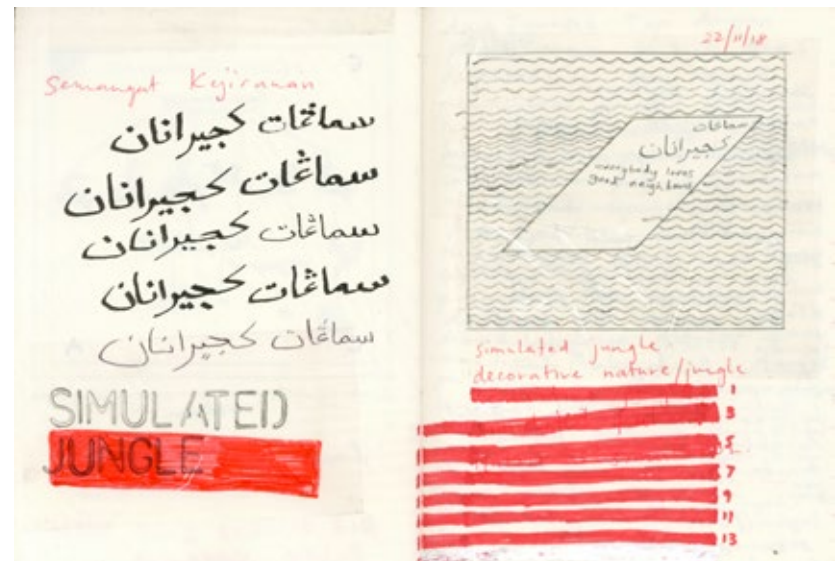 Semangat Kejiranan
سماڠات کجيرانان
سماڠات کجيرانان
سماڠات کجيرانان
سماڠات کجيرانان
سماڠات کجيرانان
SIMULATED
JUNGLE
22/11/18
سماڠات
کجيرانان
everybody loves
good neighbours
simulated jungle
decorative nature/jungle
1
3
5
7
9
11
13